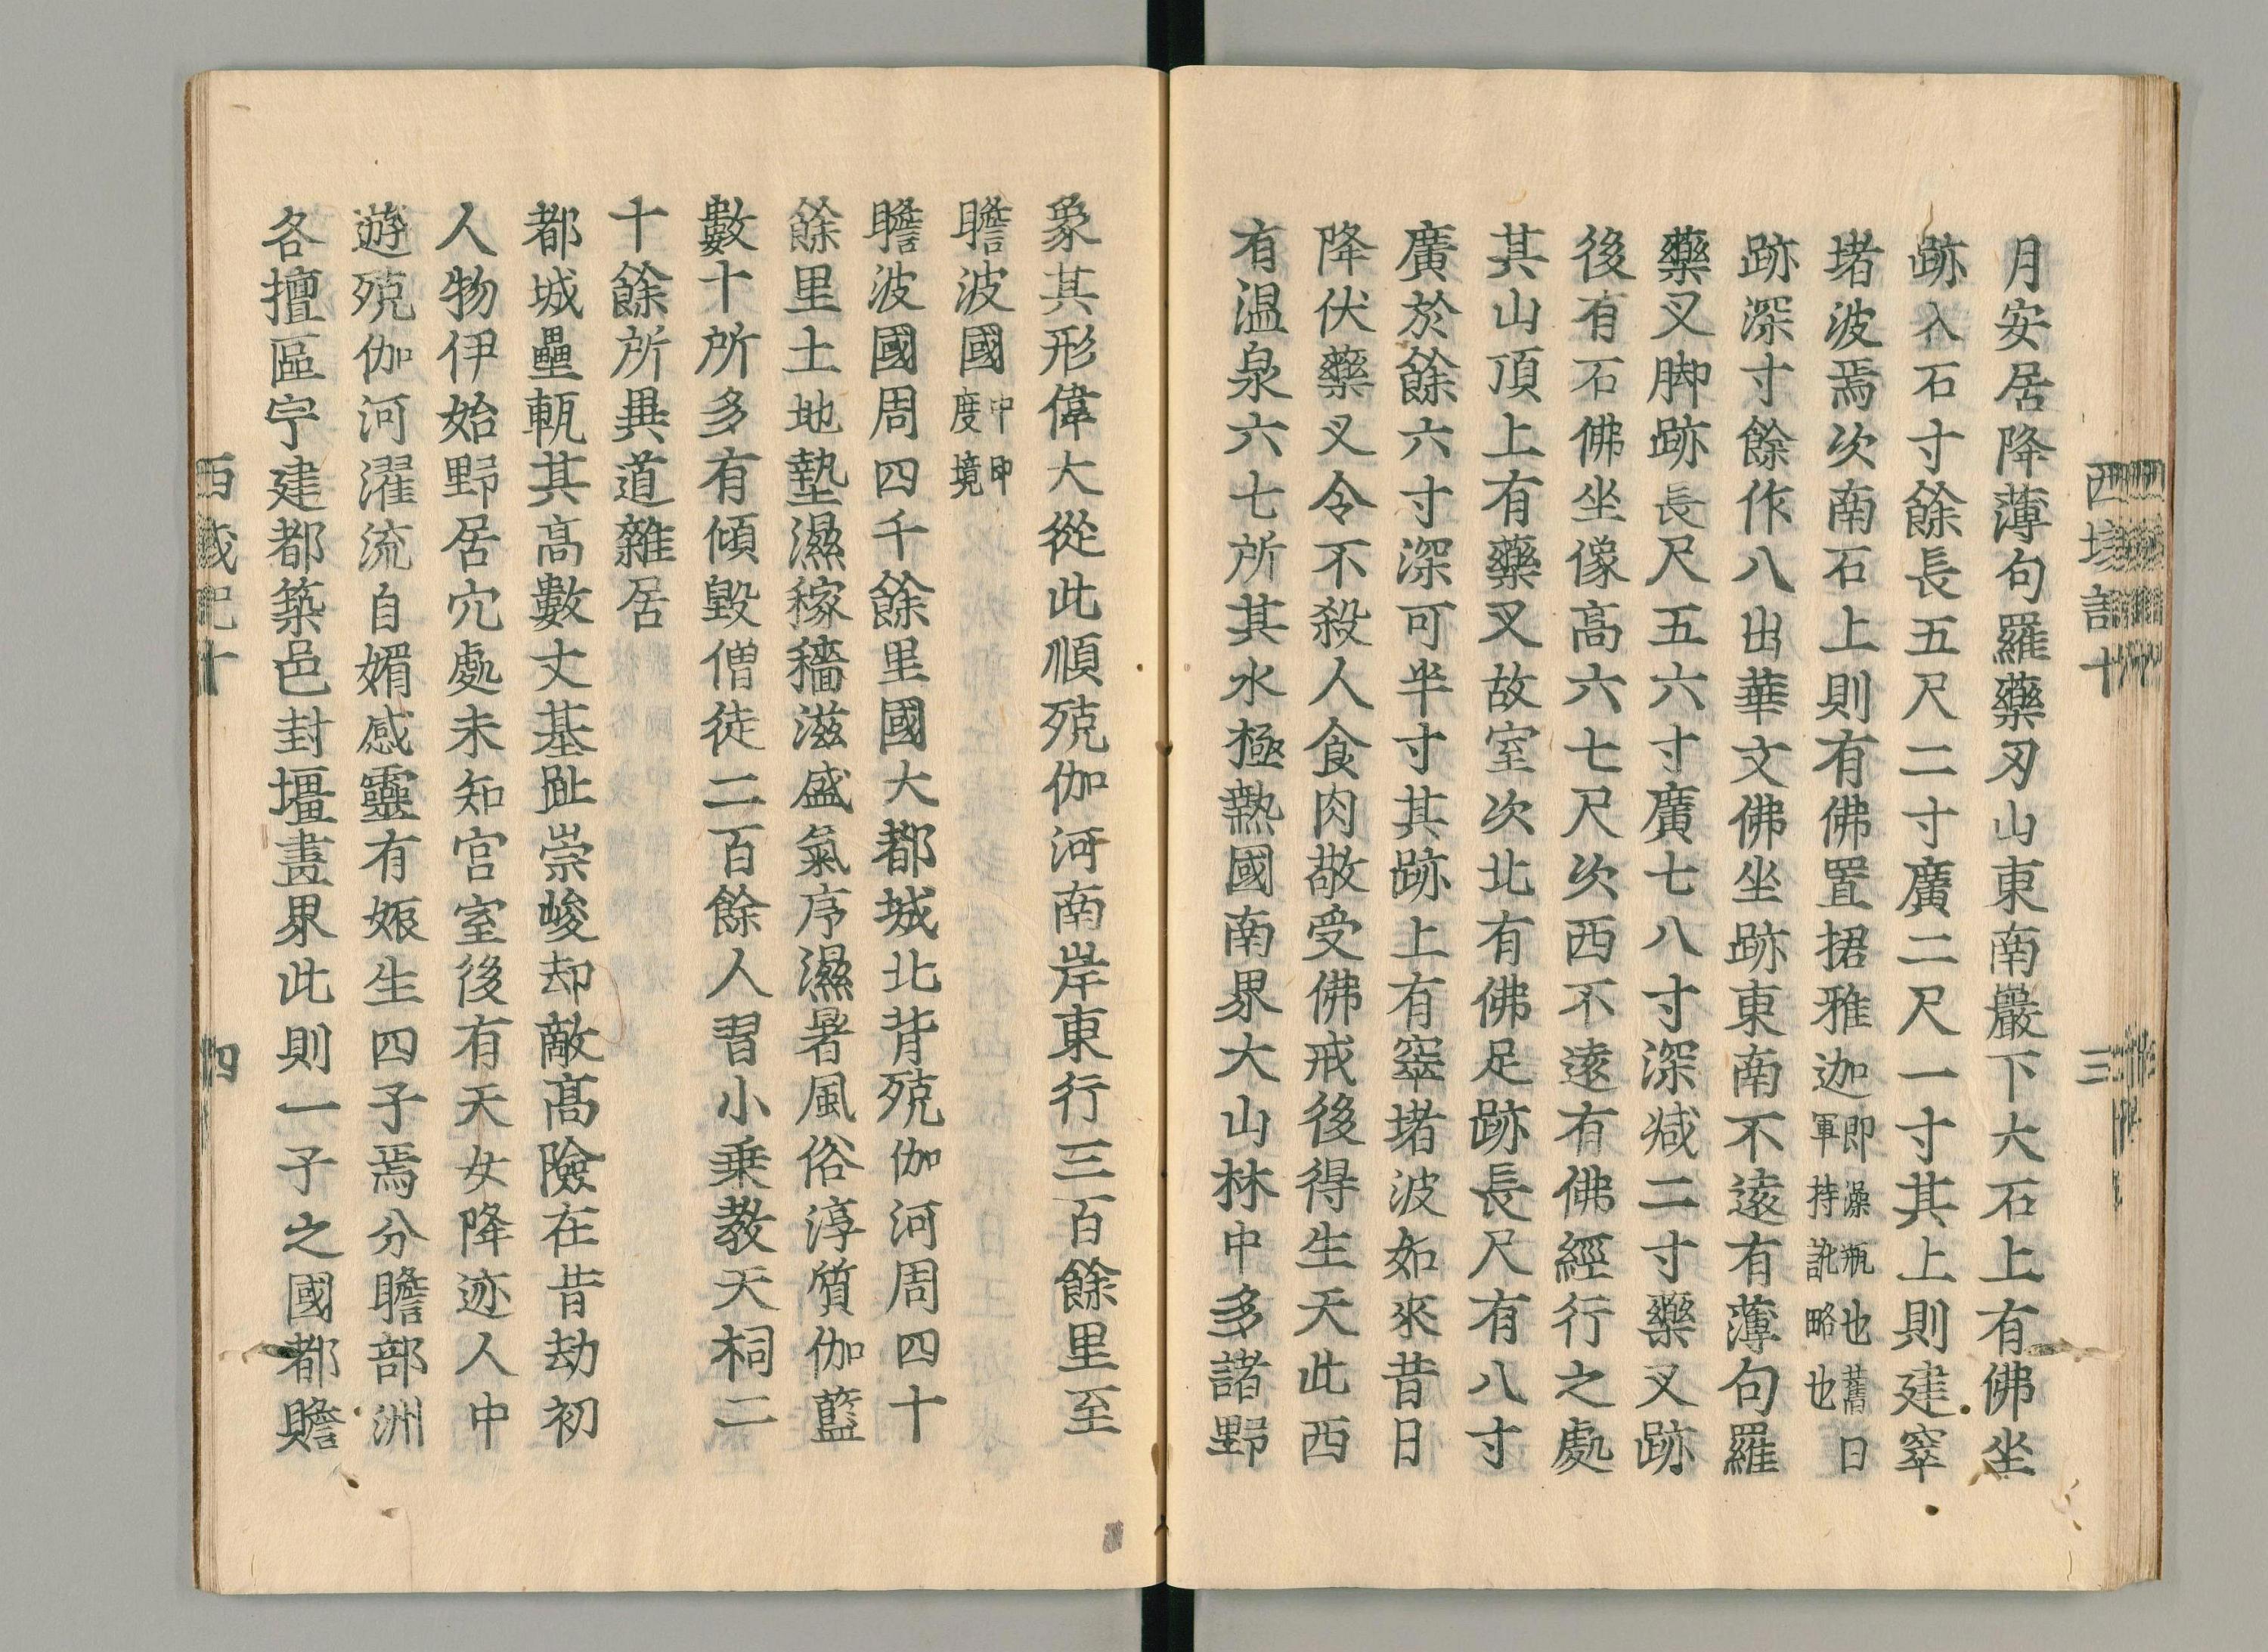 西域記十 三
月安居降薄句羅藥刃山東南巖下大石上有佛坐
跡入石寸餘長五尺二寸廣二尺一寸其上則建窣
堵波焉次南石上則有佛置捃雅迦即澡瓶也舊曰軍持訛略也
跡深寸餘作八出華文佛坐跡東南不遠有薄句羅
藥叉脚跡長尺五六寸廣七八寸深減二寸藥叉跡
後有石佛坐像高六七尺次西不遠有佛經行之處
其山頂上有藥叉故室次北有佛足跡長尺有八寸
廣於餘六寸深可半寸其跡上有窣堵波如來昔日
降伏藥叉令不殺人食肉敬受佛戒後得生天此西
有温泉六七所其水極熱國南界大山林中多諸野
象其形偉大從此順殑伽河南岸東行三百餘里至
瞻波國中印度境
瞻波國周四千餘里國大都城北背殑伽河周四十
餘里土地墊濕稼穡滋盛氣序濕暑風俗淳質伽藍
數十所多有傾毀僧徒二百餘人習小乗教天祠二
十餘所異道雜居
都城壘甎其高數丈基趾崇峻却敵髙險在昔劫初
人物伊始野居穴處未知宫室後有天女降迹人中
遊殑伽河濯流自媚感靈有娠生四子焉分瞻部洲
各擅區宇建都築邑封壃畫界此則一子之國都贍
西域記十 四